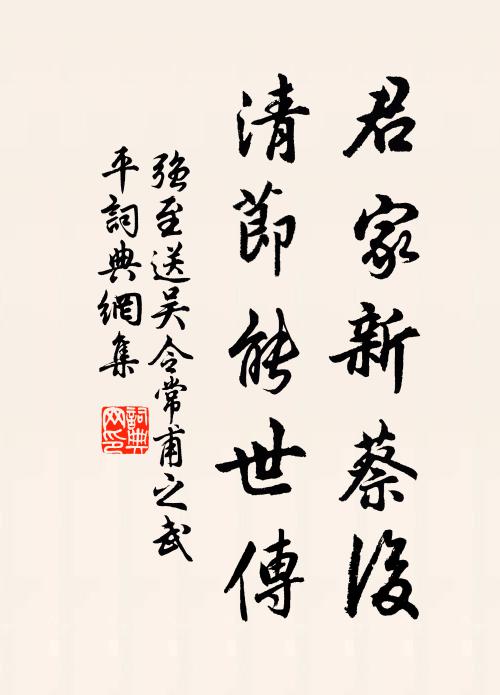 君家新蔡後
清節能世傳
強至送吴令常甫之武
平詞典網集
詞典网印